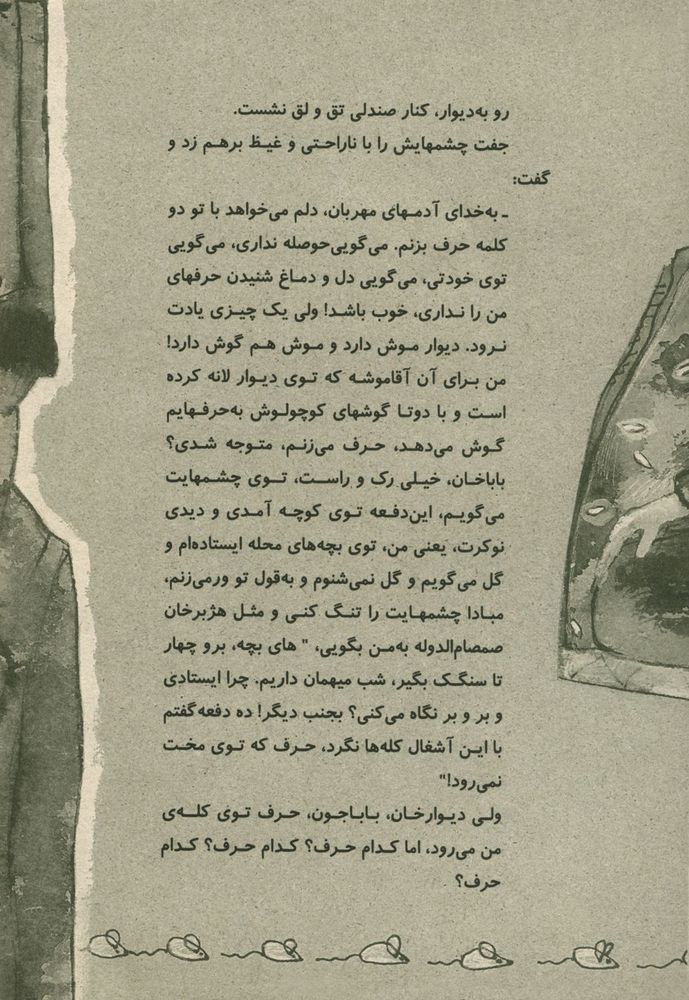 رو به‌دیوار، کنار صندلی تق و لق نشست.
جفت چشمهایش را با ناراحتی و غیظ برهم زد و
گفت:
ـ به‌خدای آدمهای مهربان، دلم می‌خواهد با تو دو
کلمه حرف بزنم. می‌گویی‌حوصله نداری، می‌گویی
توی خودتی، می‌گویی دل و دماغ شنیدن حرفهای
من را نداری، خوب باشد! ولی یک چیزی یادت
نرود. دیوار موش دارد و موش هم گوش دارد!
من برای آن آقاموشه که توی دیوار لانه کرده
است و با دوتا گوشهای کوچولوش به‌حرفهایم
گوش می‌دهد، حرف می‌زنم، متوجه شدی؟
باباخان، خیلی رک و راست، توی چشمهایت
می‌گویم، این‌دفعه توی کوچه آمدی و دیدی
نوکرت، یعنی من، توی بچه‌های محله ایستاده‌ام و
گل می‌گویم و گل نمی‌شنوم و به‌قول تو ورمی‌زنم،
مبادا چشمهایت را تنگ کنی و مثل هژبرخان
صمصام‌الدوله به‌من بگویی، " های بچه، برو چهار
تا سنگک بگیر، شب میهمان داریم. چرا ایستادی
و بر و بر نگاه می‌کنی؟ بجنب دیگر! ده دفعه‌گفتم
با این آشغال کله‌ها نگرد، حرف که توی مخت
نمی‌رود!"
ولی دیوارخان، باباجون، حرف توی کله‌ی
من می‌رود، اما کدام حرف؟ کدام حرف؟ کدام
حرف؟